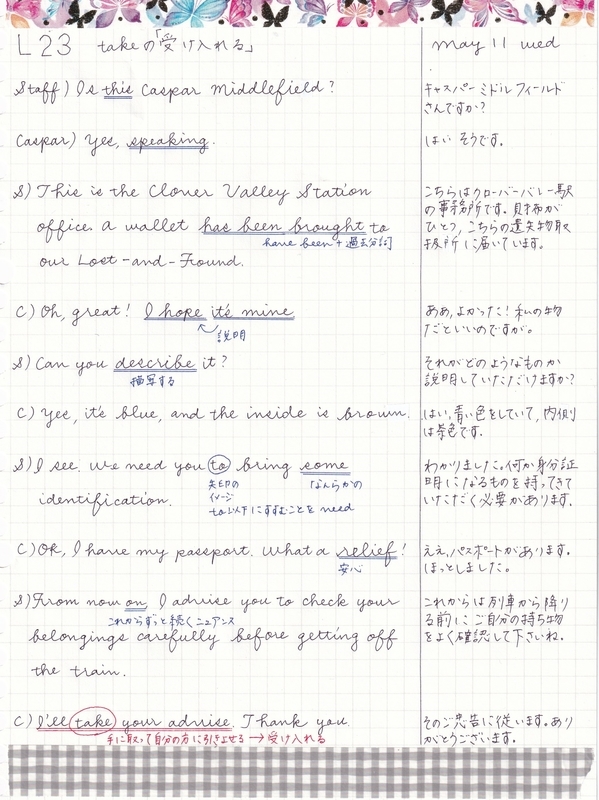 L 23 takeの「受け入れる」
may 11 wed
Staff) Is this Caspar Middlefield?
キャスパー ミドルフィールド
さんですか?
Caspar) Yes, speaking.
はい そうです。
S) This is the Clover Valley Station
office. a wallet has been brought to
have been + 過去分詞
our Lost-and-Found.
こちらはクローバーバレー駅
の事務所です。財布が
ひとつ、こちらの遺失物取
扱所に届いています。
C) Oh, great! I hope it's mine
説明
ああ、よかった!私の物
だといいのですが。
S) Can you describe it?
描写する
それがどのようなものか
説明していただけますか?
C) Yes, it's blue, and the inside is brown.
はい、青い色をしていて、内側
は茶色です。
S) I see. We need you to bring some
矢印の
イメージ
「なんらかの
identification.
to以下にすすむことを need
わかりました。何か身分証
明になるものを持ってきて
いただく必要があります。
C) OK, I have my passport. What a relief!
安心
ええ、パスポートがあります。
ほっとしました。
S) From now on, I advise you to check your
これからずっと続くニュアンス
belongings carefully before getting off
the train.
これからは列車から降り
る前にご自分の持ち物
をよく確認して下さいね。
C) I'll take your advise. Thank you
手に取って自分の方に引きよせる → 受け入れる
そのご忠告に従います。あり
がとうございます。